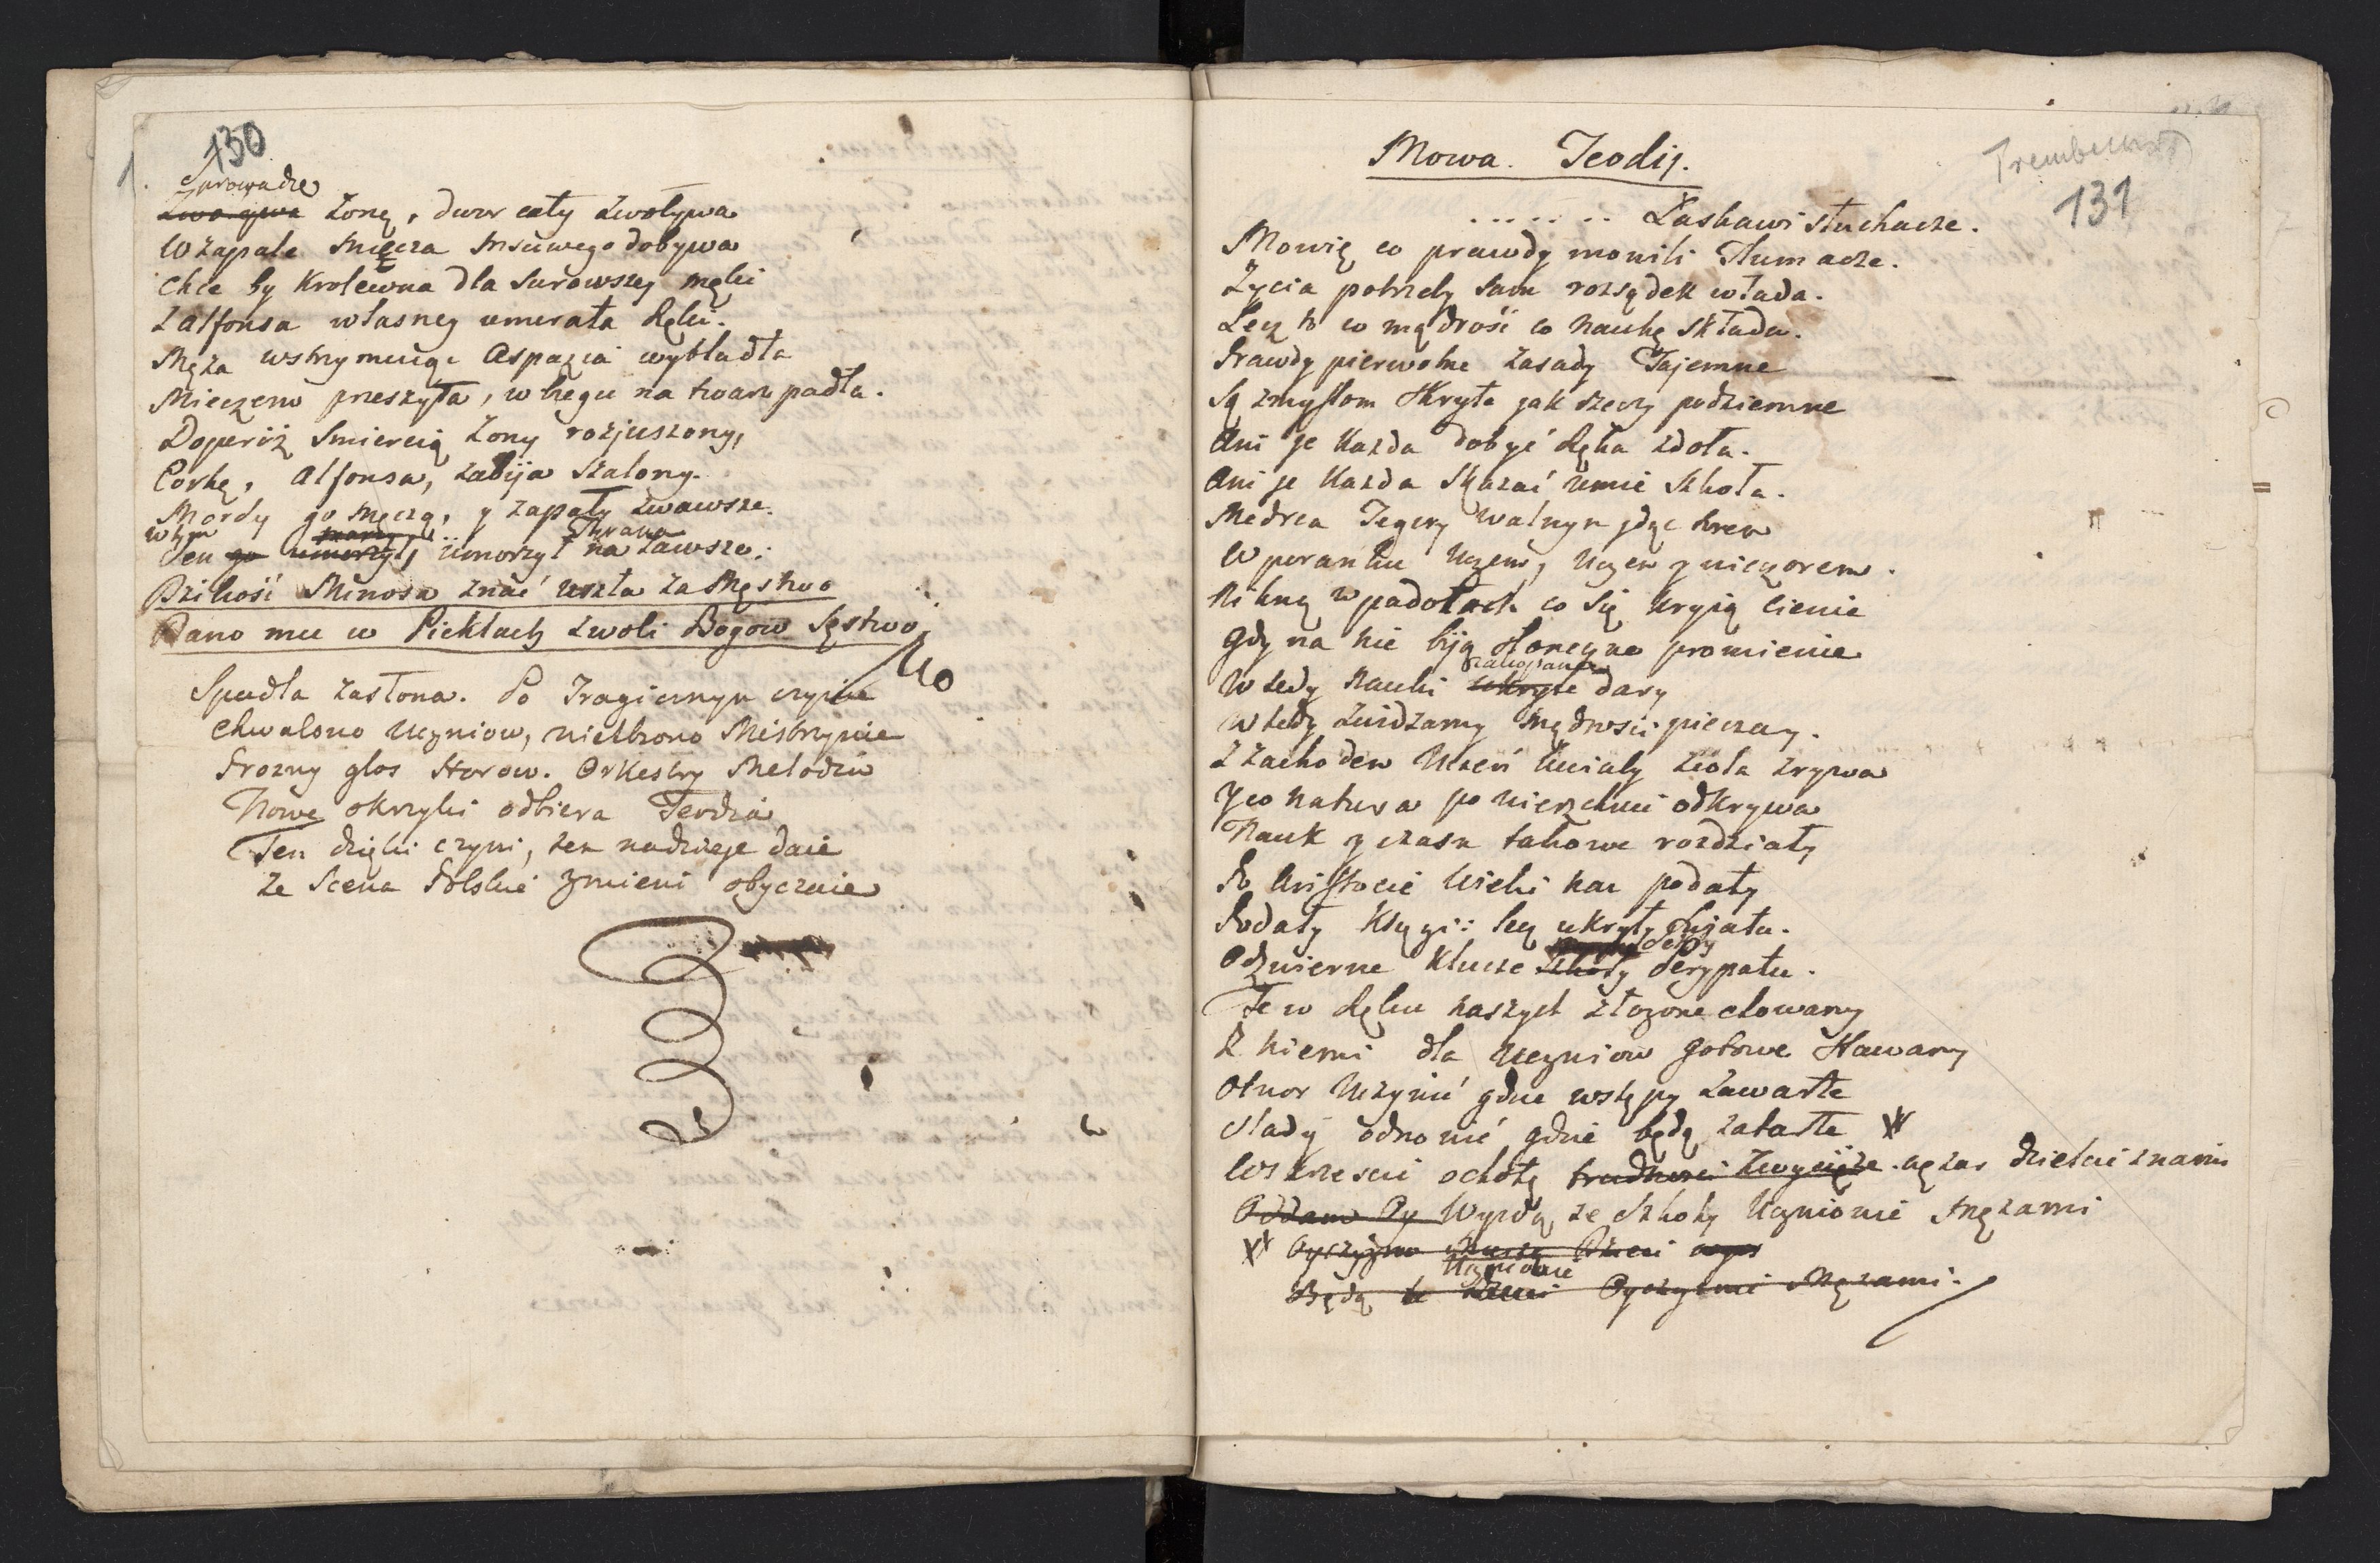 130
1.
Sprowadza
Zwo ywa Zonę, dwor cały zwoływa
W zapale Miecza Mściwego dobywa
Chce by Krolewna dla surowszey męki
Z Alfonsa własney umierała Ręki.
Męża wstrzymuiąc Aspazia wybladła
Mieczem przeszyta, w biegu na twarz padła.
Doperóż Smiercią Zony rozjuszony,
Corkę, Alfonsa, zabija Szalony.
Mordy go męczą, y zapały zwawsze.
w tym Tyrana
Sen go umorzył, umorzył na zawsze:
Dzikość Minosa znać uszła za Męstwo
Dano mu w Piekłach z woli Bogow Sęstwo.
Spadła zasłona. Po Tragicznym czynie
Chwalono Uczniow, wielbiono Mistrzynie
Prozny głos Horow. Orkestry Melodia
Nowe okrzyki odbiera Teodia
Ten dzięki czyni, ten nadzieje daie
Ze Scena Polskie zmieni obyczaie
Trembecki
131
Mowa. Teodij.
. . . . . . . Łaskawi słuchacze.
Mowię co prawdy mowili Tłumacze.
Zycia potrzeby sam rozsądek włada.
Lecz to co mądrość co naukę składa.
Prawdy pierwotne zasady Tajemne
Są zmysłom skryte jak rzeczy podziemne
Ani je Kazda dobyć Ręka zdoła.
Ani je Kazda skazać umie szkoła.
Medrca Tegery Walnym jdąc krem
W poranku Uczeń, Uczeń z wieczorem.
Nikną w padołach co się kryią cienie
Gdy na nie biją słoneczne promienie
zakopane
Wtedy Nauki ukryte dary
Wtedy zwidzamy mądrosci pieczary.
Z zachodem Uczeń kwiaty zioła zrywa
Y co natura powierzchnie odkrywa
Nauk y czasu takowe rozdziały
Po Aristocie Wieki nam podały
Podały Księgi: lecz ukryty świata.
Odźwierne Klucze szkoły Perypatu.
Te w Ręku naszych złozone chowamy
Z niemi dla Uczniow gotowe stawamy
Otwor Uczynić gdzie wstępy zawarte
Slady odnowić gdzie będą zatarte
Wskrzescie ochotę trudnosci Zwycięże cęzar dzielcie z nami
Oddam Oy Wyydą ze szkoły Uczniowie mężami
Oyczyzno Dzieci
Uczniowie
Będą te Dzieci Oyczyznie Mężami.